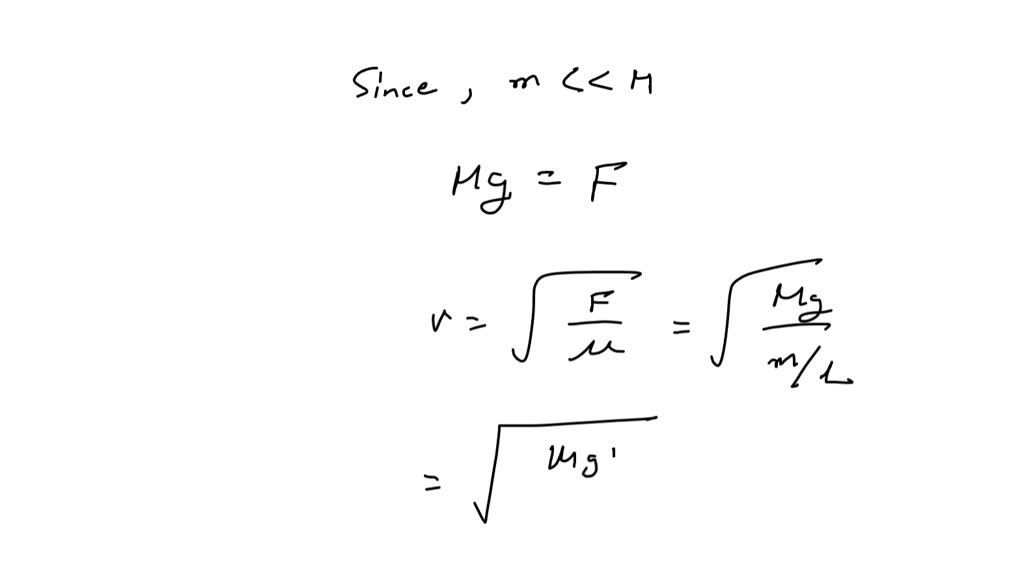 Since, m << M
Mg = F
v = √(F/μ) = √(Mg/(m/L))
= √(Mg'